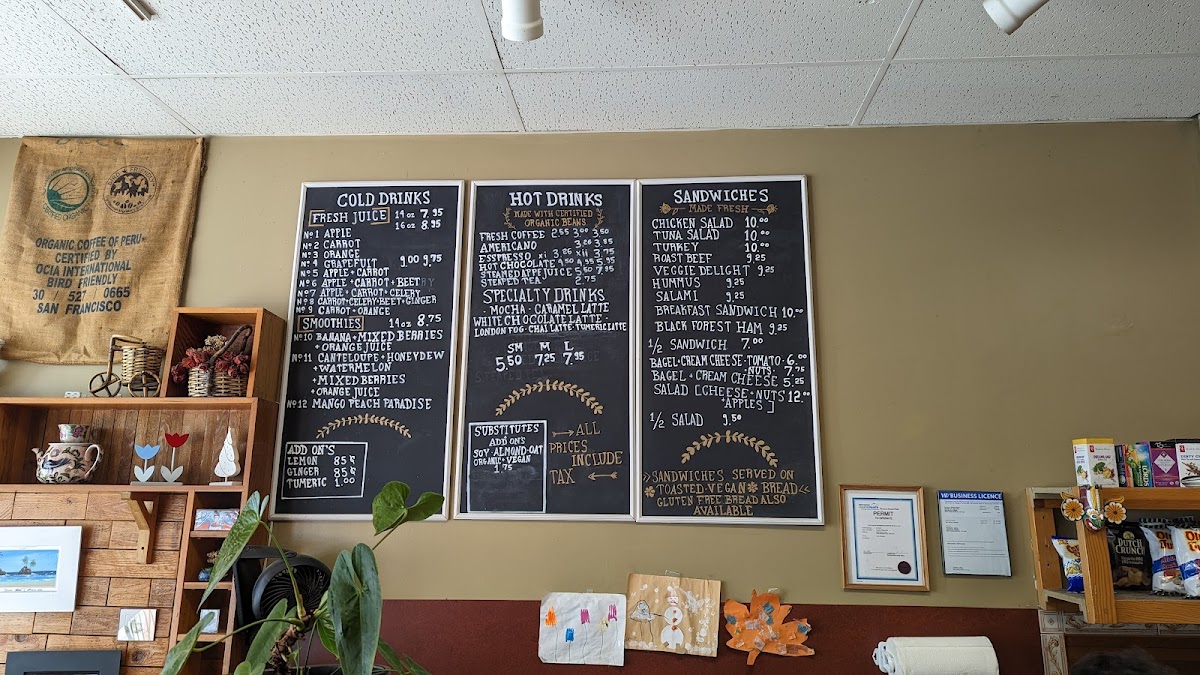 ORGANIC COFFEE OF PERU
CERTIFIED BY
OCIA INTERNATIONAL
BIRD FRIENDLY
30 / 527 0665
SAN FRANCISCO
COLD DRINKS
FRESH JUICE 14oz 7.95
16oz 8.95
Nº1 APPLE
Nº2 CARROT
Nº3 ORANGE
Nº4 GRAPEFUIT 9.00 9.75
Nº5 APPLE+CARROT
Nº6 APPLE+CARROT+BEET
Nº7 APPLE+CARROT+CELERY
Nº8 CARROT+CELERY+BEET+GINGER
Nº9 CARROT+ORANGE
SMOOTHIES 14oz 8.75
Nº10 BANANA+MIXED BERRIES
+ORANGE JUICE
Nº11 CANTELOUPE+HONEYDEW
+WATERMELON
+MIXED BERRIES
+ORANGE JUICE
Nº12 MANGO PEACH PARADISE
ADD ON'S
LEMON 85¢
GINGER 85¢
TUMERIC 1.00
HOT DRINKS
MADE WITH CERTIFIED
ORGANIC BEANS
FRESH COFFEE 2.55 3.00 3.50
AMERICANO 3.26 3.85
ESSPRESSO x1 3.26 x11 3.75
HOT CHOCOLATE 4.50 4.95 5.95
STEAMED APPE JUICE 5.50 7.95
STEAPED TEA 2.75
SPECIALTY DRINKS
- MOCHA - CARAMEL LATTE
WHITE CHOCOLATE LATTE -
LONDON FOG - CHAI LATTE - TUMERIC LATTE
SM M L
5.50 7.25 7.95
SUBSTITUTES
ADD ON'S
SOY-ALMOND-OAT
ORGANIC+VEGAN
1.75
ALL
PRICES
INCLUDE
TAX
SANDWICHES
MADE FRESH
CHICKEN SALAD 10.00
TUNA SALAD 10.00
TURKEY 10.00
ROAST BEEF 9.25
VEGGIE DELIGHT 9.25
HUMMUS 9.25
SALAMI 9.25
BREAKFAST SANDWICH 10.00
BLACK FOREST HAM 9.25
1/2 SANDWICH 7.00
BAGEL+CREAM CHEESE-TOMATO- 6.00
-NUTS- 7.75
BAGEL+CREAM CHEESE 5.25
SALAD [CHEESE+NUTS 12.00
+APPLES]
1/2 SALAD 9.50
SANDWICHES SERVED ON
TOASTED-VEGAN BREAD
GLUTEN FREE BREAD ALSO
AVAILABLE
PERMIT
BUSINESS LICENCE
DUTCH
CRUNCH